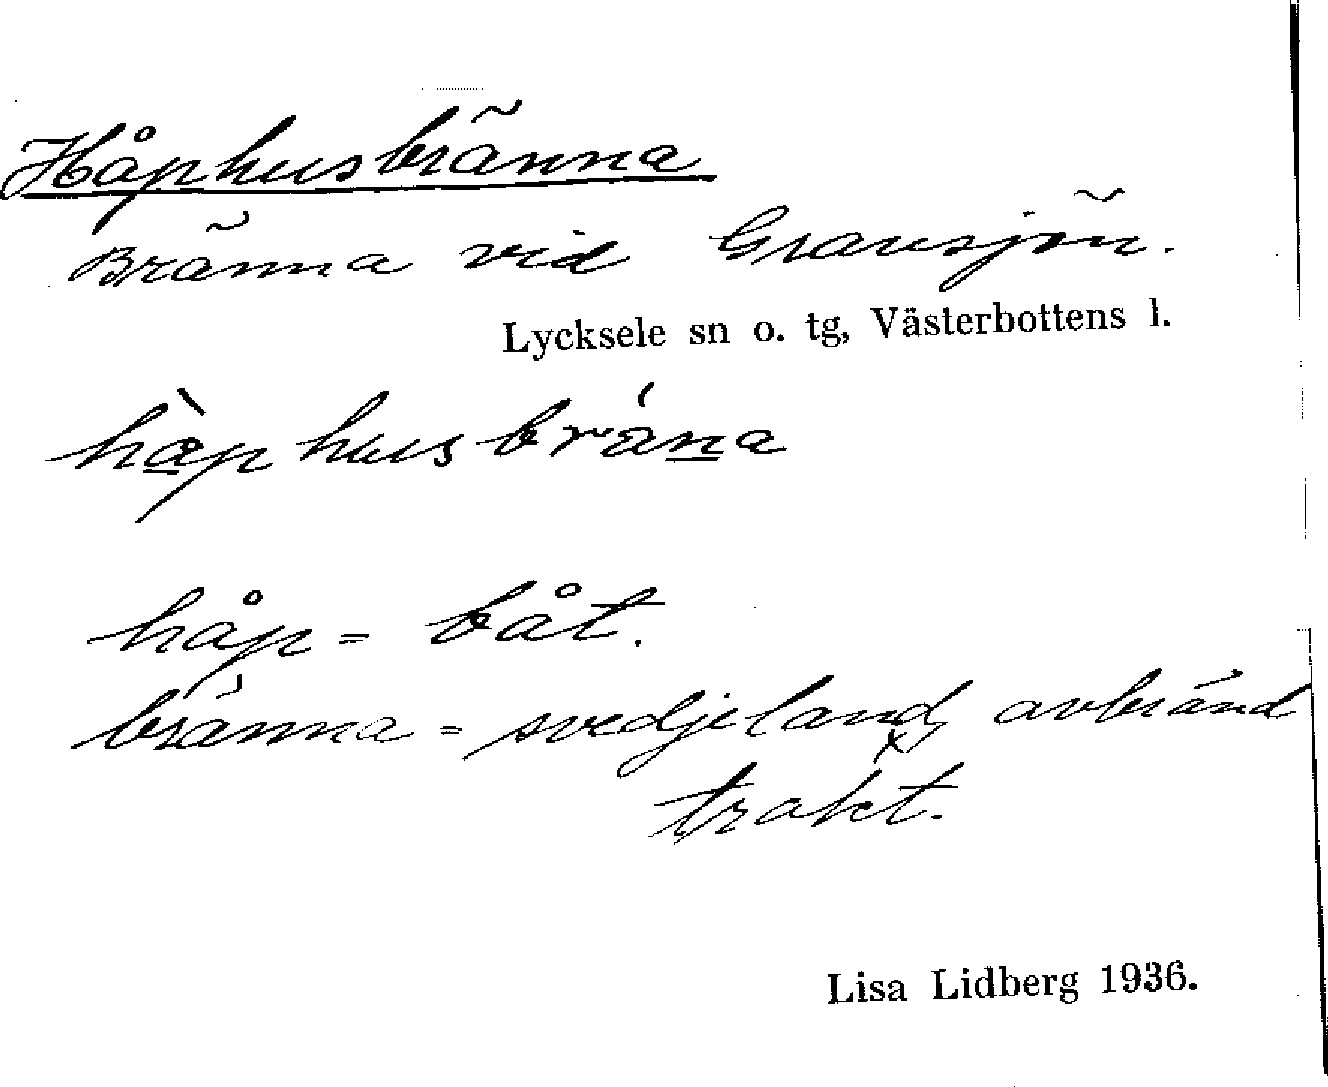 Håphusbränna
Bränna vid Gransjön.
Lycksele sn o. tg, Västerbottens l.
hàphusbrána
håp = båt.
bränna = svedjeland, avbränd
trakt.
Lisa Lidberg 1936.